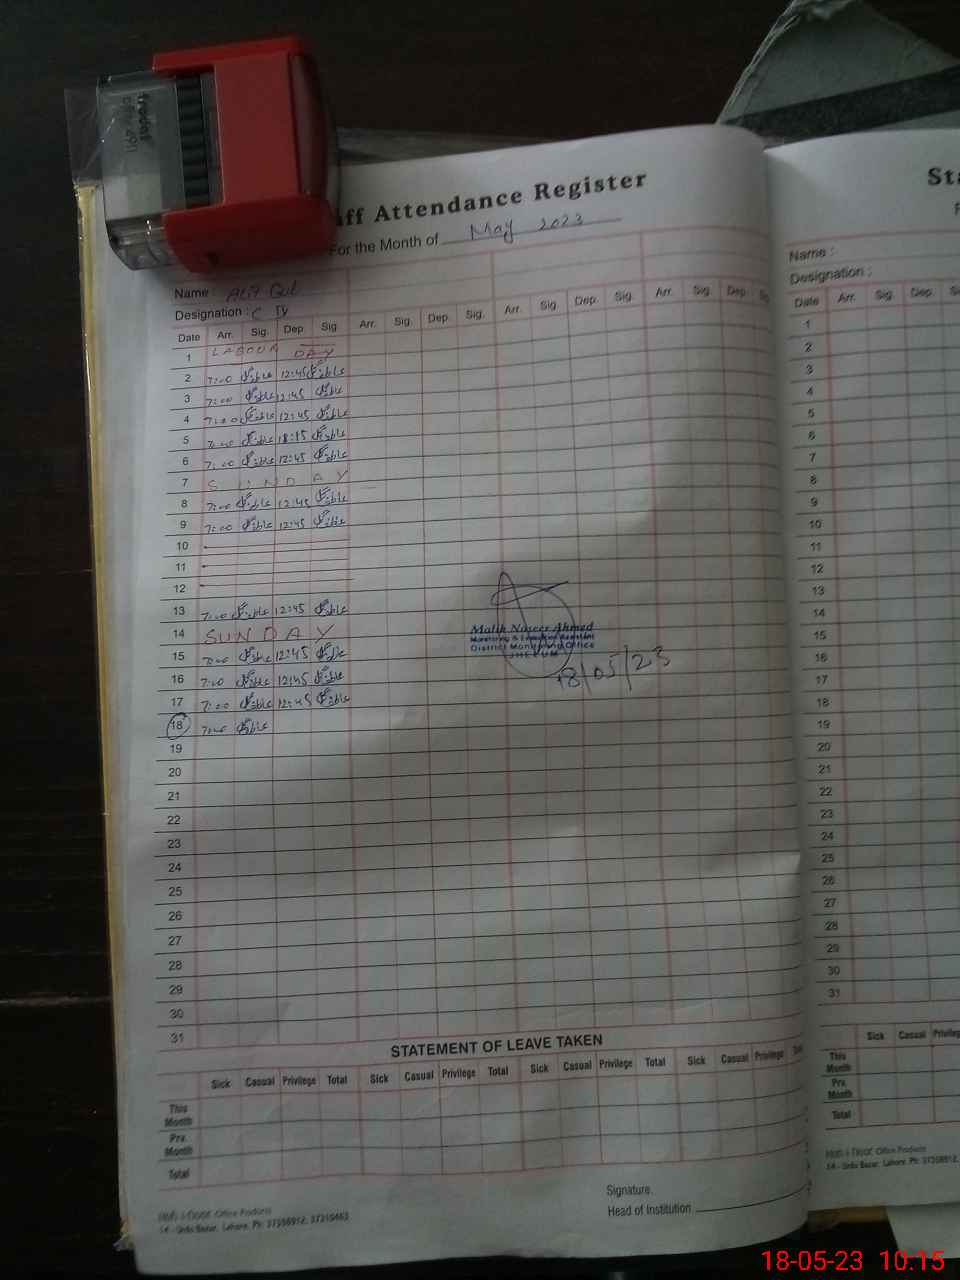 trodat
Staff Attendance Register
For the Month of May 2023
Name : Atif Gul
Designation : C IV
Date Arr. Sig. Dep. Sig Arr. Sig. Dep. Sig. Arr. Sig Dep. Sig. Arr. Sig. Dep. Sig
1 LABOUR DAY
2 7:00 12:45
3 7:00 12:45
4 7:00 12:45
5 7:00 18:15
6 7:00 12:45
7 SUNDAY
8 7:00 12:45
9 7:00 12:45
10
11
12
13 7:00 12:45
14 SUNDAY
15 7:00 12:45
16 7:00 12:45
17 7:00 12:45
18 7:00
19
20
21
22
23
24
25
26
27
28
29
30
31
Malik Naseer Ahmed
Monitoring & Evaluation Assistant
District Monitoring Office
JHELUM
18/05/23
STATEMENT OF LEAVE TAKEN
Sick Casual Privilege Total Sick Casual Privilege Total Sick Casual Privilege Total Sick Casual Privilege
This Month
Prv. Month
Total
Signature
Head of Institution
Office Products
14 - Urdu Bazar, Lahore. Ph:
Sta
Name :
Designation :
Date Arr. Sig. Dep.
1
2
3
4
5
6
7
8
9
10
11
12
13
14
15
16
17
18
19
20
21
22
23
24
25
26
27
28
29
30
31
Sick Casual Privilege
This Month
Prv. Month
Total
Office Products
14 - Urdu Bazar, Lahore. Ph: 37358912,
18-05-23 10:15